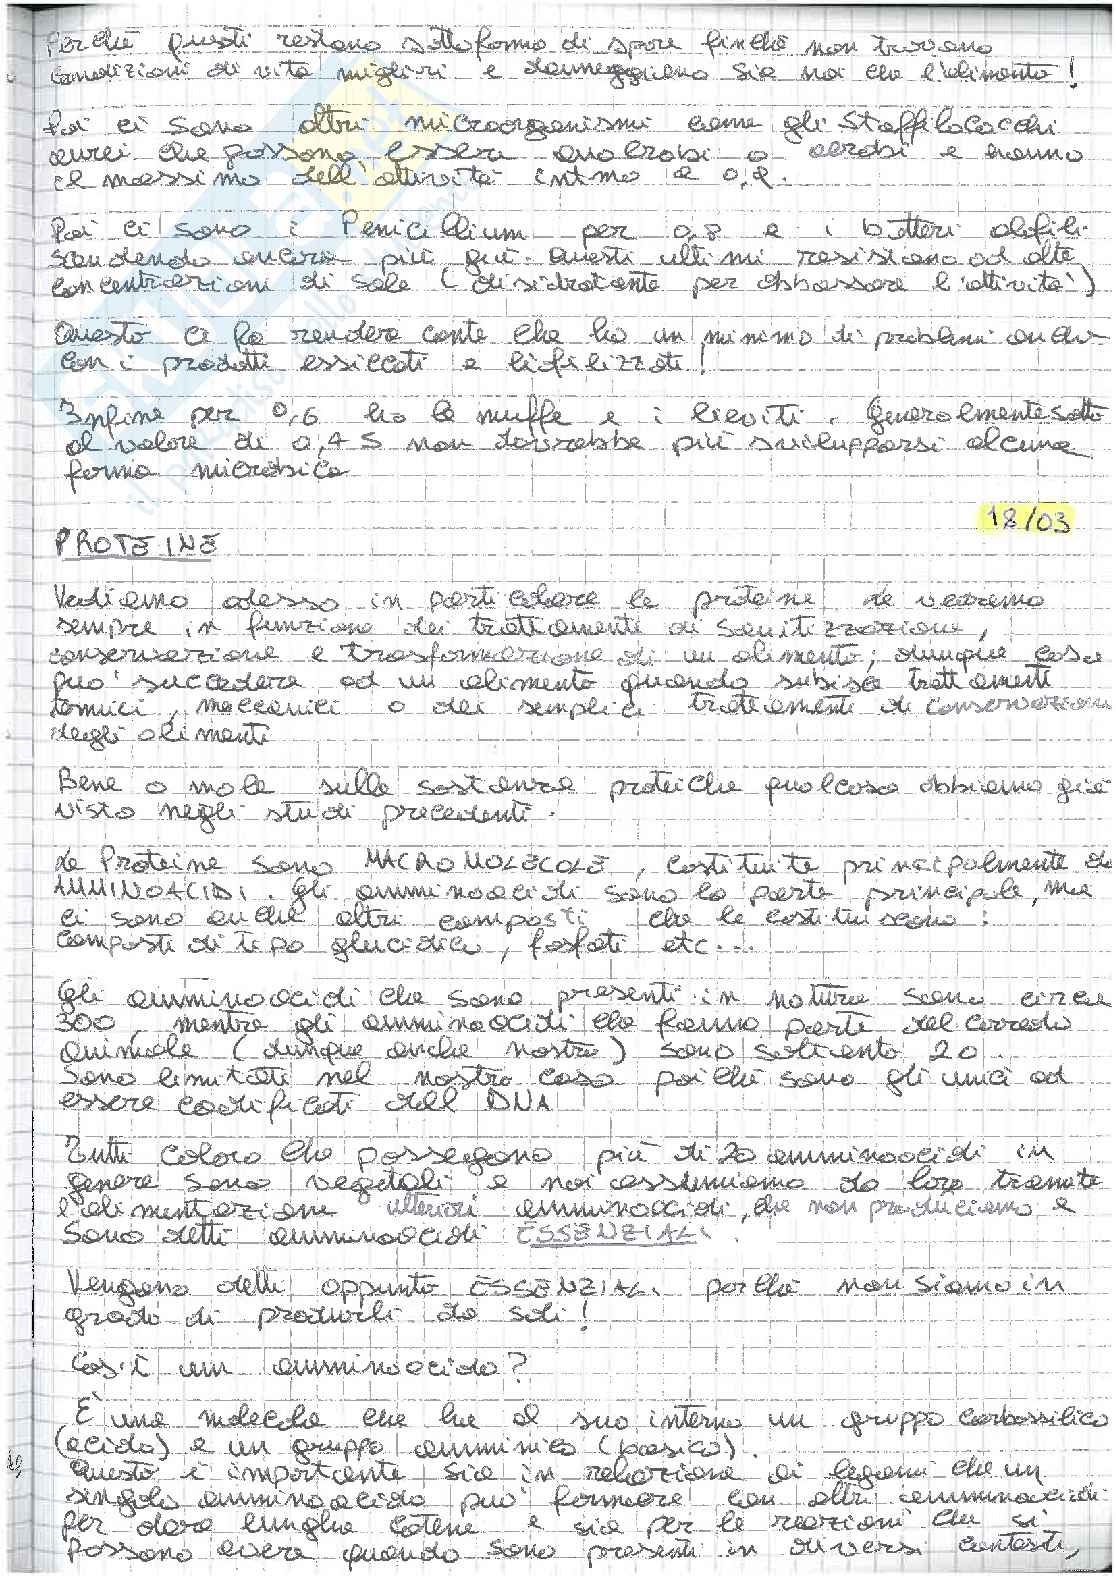 Perchè questi restano sottoforma di spore finchè non trovano
condizioni di vita migliori e danneggiano sia noi che l'alimento!
Poi ci sono altri microorganismi come gli Staffilococchi
aurei che possono essere anaerobi o aerobi e hanno
il massimo dell'attività intorno a 0,9.
Poi ci sono i Penicillium per 0,8 e i batteri alofili
scendendo ancora più giù. Questi ultimi resistono ad alte
concentrazioni di sale (disidratante per abbassare l'attività)
Questo ci fa rendere conto che ho un minimo di problemi anche
con i prodotti essiccati e liofilizzati!
Infine per 0,6 ho le muffe e i lieviti. Generalmente sotto
al valore di 0,45 non dovrebbe più svilupparsi alcuna
forma microbica
18/03
PROTEINE
Vediamo adesso in particolare le proteine, le vedremo
sempre in funzione dei trattamenti di sanitizzazione,
conservazione e trasformazione di un alimento; dunque cosa
può succedere ad un alimento quando subisce trattamenti
termici, meccanici o dei semplici trattamenti di conservazione
degli alimenti
Bene o male sulle sostanze proteiche qualcosa abbiamo già
visto negli studi precedenti.
Le Proteine sono MACROMOLECOLE, costituite principalmente da
AMMINOACIDI. Gli amminoacidi sono la parte principale, ma
ci sono anche altri composti che le costituiscono:
composti di tipo glucidico, fosfati etc...
Gli amminoacidi che sono presenti in natura sono circa
300, mentre gli amminoacidi che fanno parte del corredo
animale (dunque anche nostro) sono soltanto 20.
Sono limitati nel nostro caso poichè sono gli unici ad
essere codificati dell DNA
Tutti coloro che posseggono più di 20 amminoacidi in
genere sono vegetali e noi assumiamo da loro tramite
l'alimentazione ulteriori amminoacidi, che non produciamo e
sono detti amminoacidi ESSENZIALI.
Vengono detti appunto ESSENZIALI perchè non siamo in
grado di produrli da soli!
Cos'è un amminoacido?
È una molecola che ha al suo interno un gruppo carbossilico
(acido) e un gruppo amminico (basico).
Questo è importante sia in relazione ai legami che un
singolo amminoacido può formare con altri amminoacidi
per dare lunghe catene e sia per le reazioni che si
possono avere quando sono presenti in diversi contesti,